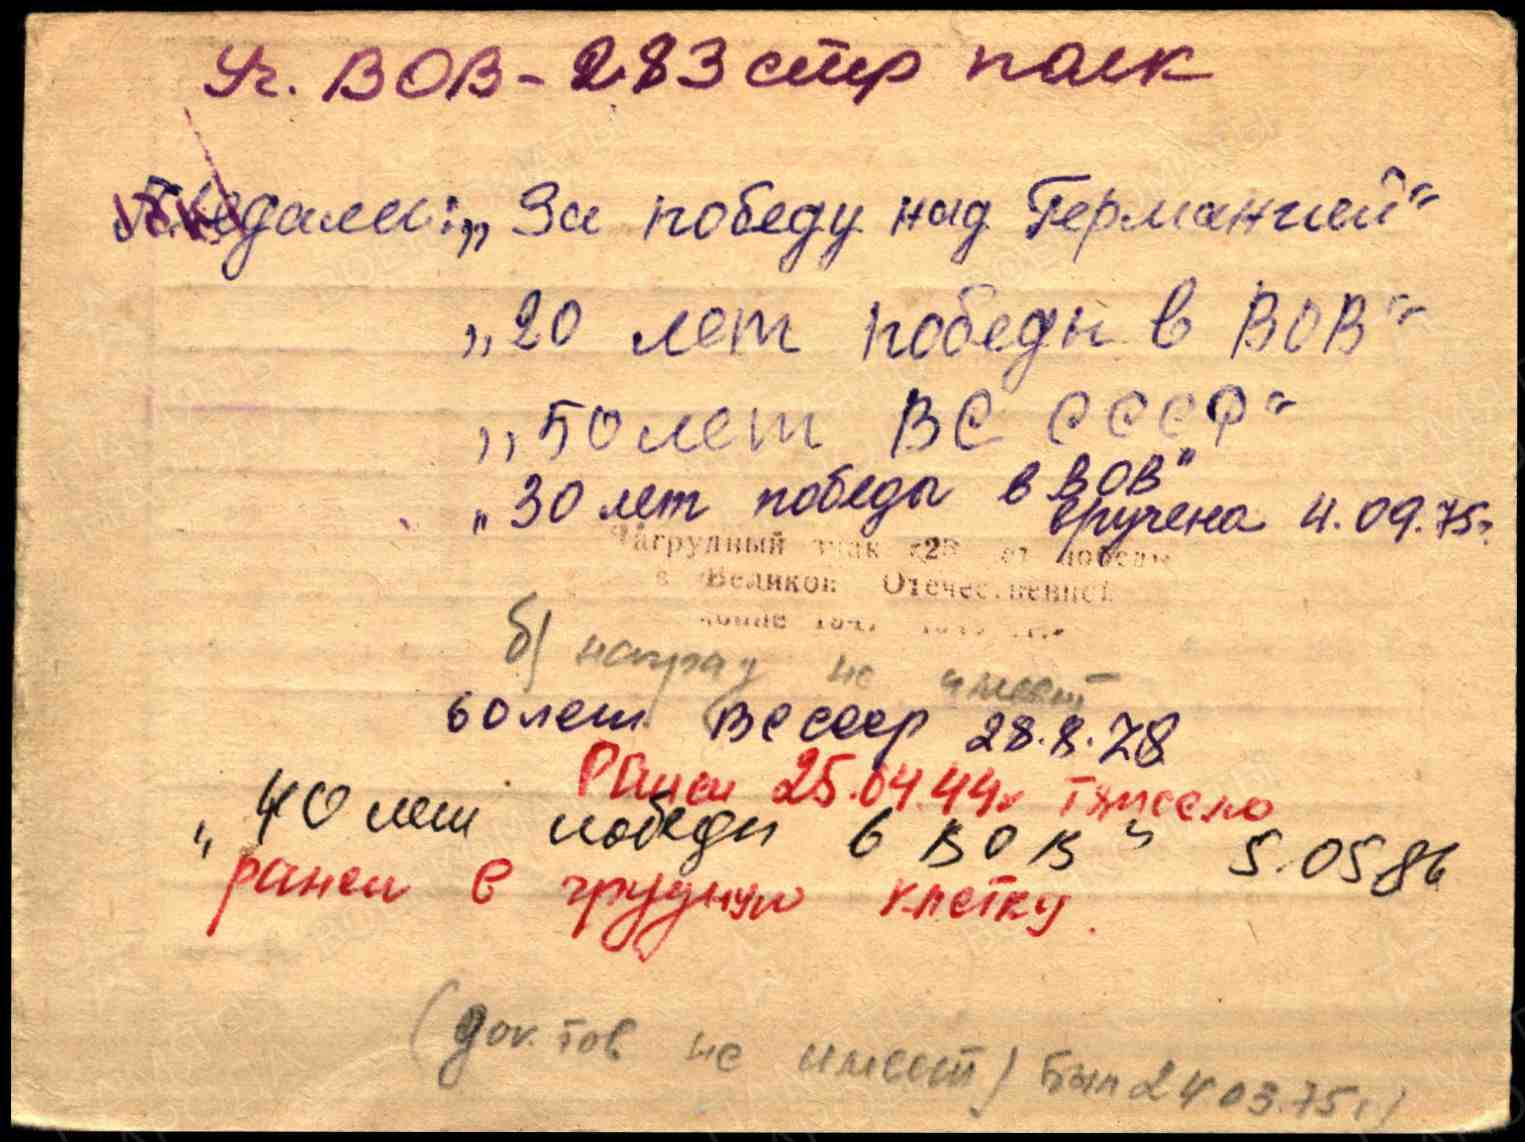 Уч. ВОВ - 283 стр полк
Медали: „За победу над Германией"
„20 лет победы в ВОВ"
„50 лет ВС СССР"
„30 лет победы в ВОВ"
вручена 4.09.75г.
Нагрудный знак «25 лет победы
в Великой Отечественной
войне
б) наград не имеет
60 лет ВС СССР 28.8.78
Ранен 25.04.44г тяжело
„40 лет победы в ВОВ" 5.05 86
ранен в грудную клетку.
(док. тов не имеет) был 24 03.75г)